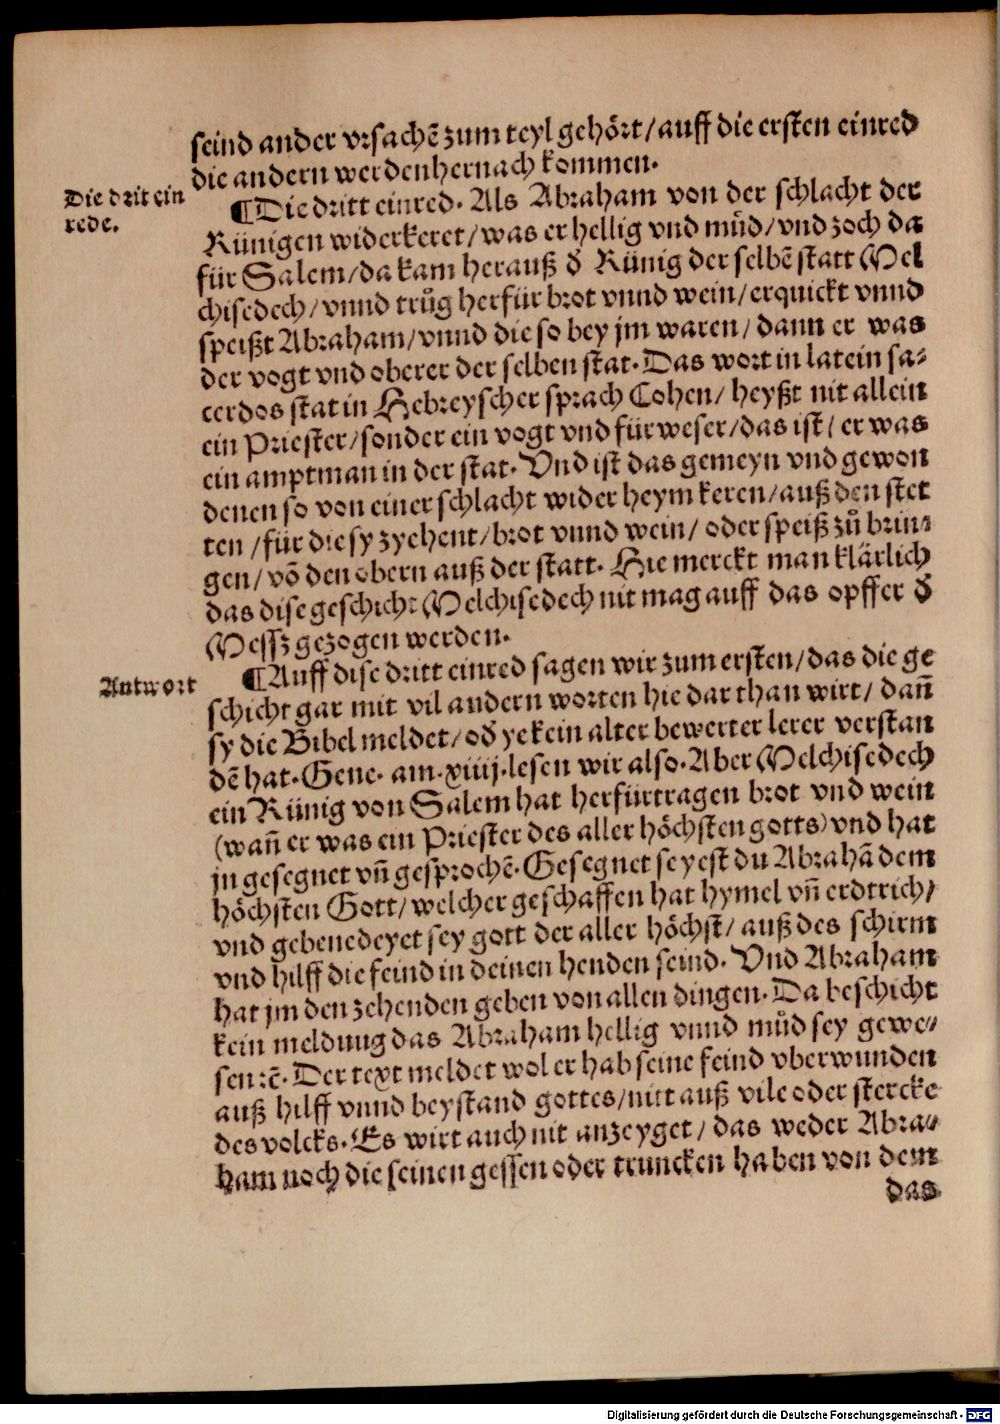 seind ander vrsachē zum teyl gehört/auff die ersten einred
die andern werden hernach kommen.
Die drit ein
rede.
¶Die dritt einred. Als Abraham von der schlacht der
Künigen widerkeret/was er hellig vnd müd/vnd zoch da
für Salem/da kam herauß d̄ Künig der selbē statt Mel
chisedech/vnnd trůg herfür brot vnnd wein/erquickt vnnd
speißt Abraham/vnnd die so bey jm waren/dann er was
der vogt vnd oberer der selben stat. Das wort in latein sa⸗
cerdos stat in Hebreyscher sprach Cohen/heyßt nit allein
ein Priester/sonder ein vogt vnd fürweser/das ist/er was
ein amptman in der stat. Vnd ist das gemeyn vnd gewon
denen so von einer schlacht wider heym keren/auß den stet
ten/für die sy zyehent/brot vnnd wein/oder speiß zů brin⸗
gen/vō den obern auß der statt. Hie merckt man klärlich
das dise geschicht Melchisedech nit mag auff das opffer d̄
Messz gezogen werden.
Antwort
¶Auff dise dritt einred sagen wir zum ersten/das die ge
schicht gar mit vil andern worten hie dar than wirt/dañ
sy die Bibel meldet/od̄ ye kein alter bewerter lerer verstan
dē hat. Gene. am. xiiij. lesen wir also. Aber Melchisedech
ein Künig von Salem hat herfürtragen brot vnd wein
(wañ er was ein Priester des aller höchsten gotts) vnd hat
jn gesegnet vñ gesprochē. Gesegnet seyest du Abrahā dem
höchsten Gott/welcher geschaffen hat hymel vñ erdtrich/
vnd gebenedeyet sey gott der aller höchst/auß des schirm
vnd hilff die feind in deinen henden seind. Vnd Abraham
hat jm den zehenden geben von allen dingen. Da beschicht
kein meldung das Abraham hellig vnnd müd sey gewe⸗
sen ꝛc̄. Der text meldet wol er hab seine feind vberwunden
auß hilff vnnd beystand gottes/nitt auß vile oder stercke
des volcks. Es wirt auch nit anzeyget/das weder Abra⸗
ham noch die seinen gessen oder truncken haben von dem
das
Digitalisierung gefördert durch die Deutsche Forschungsgemeinschaft - DFG